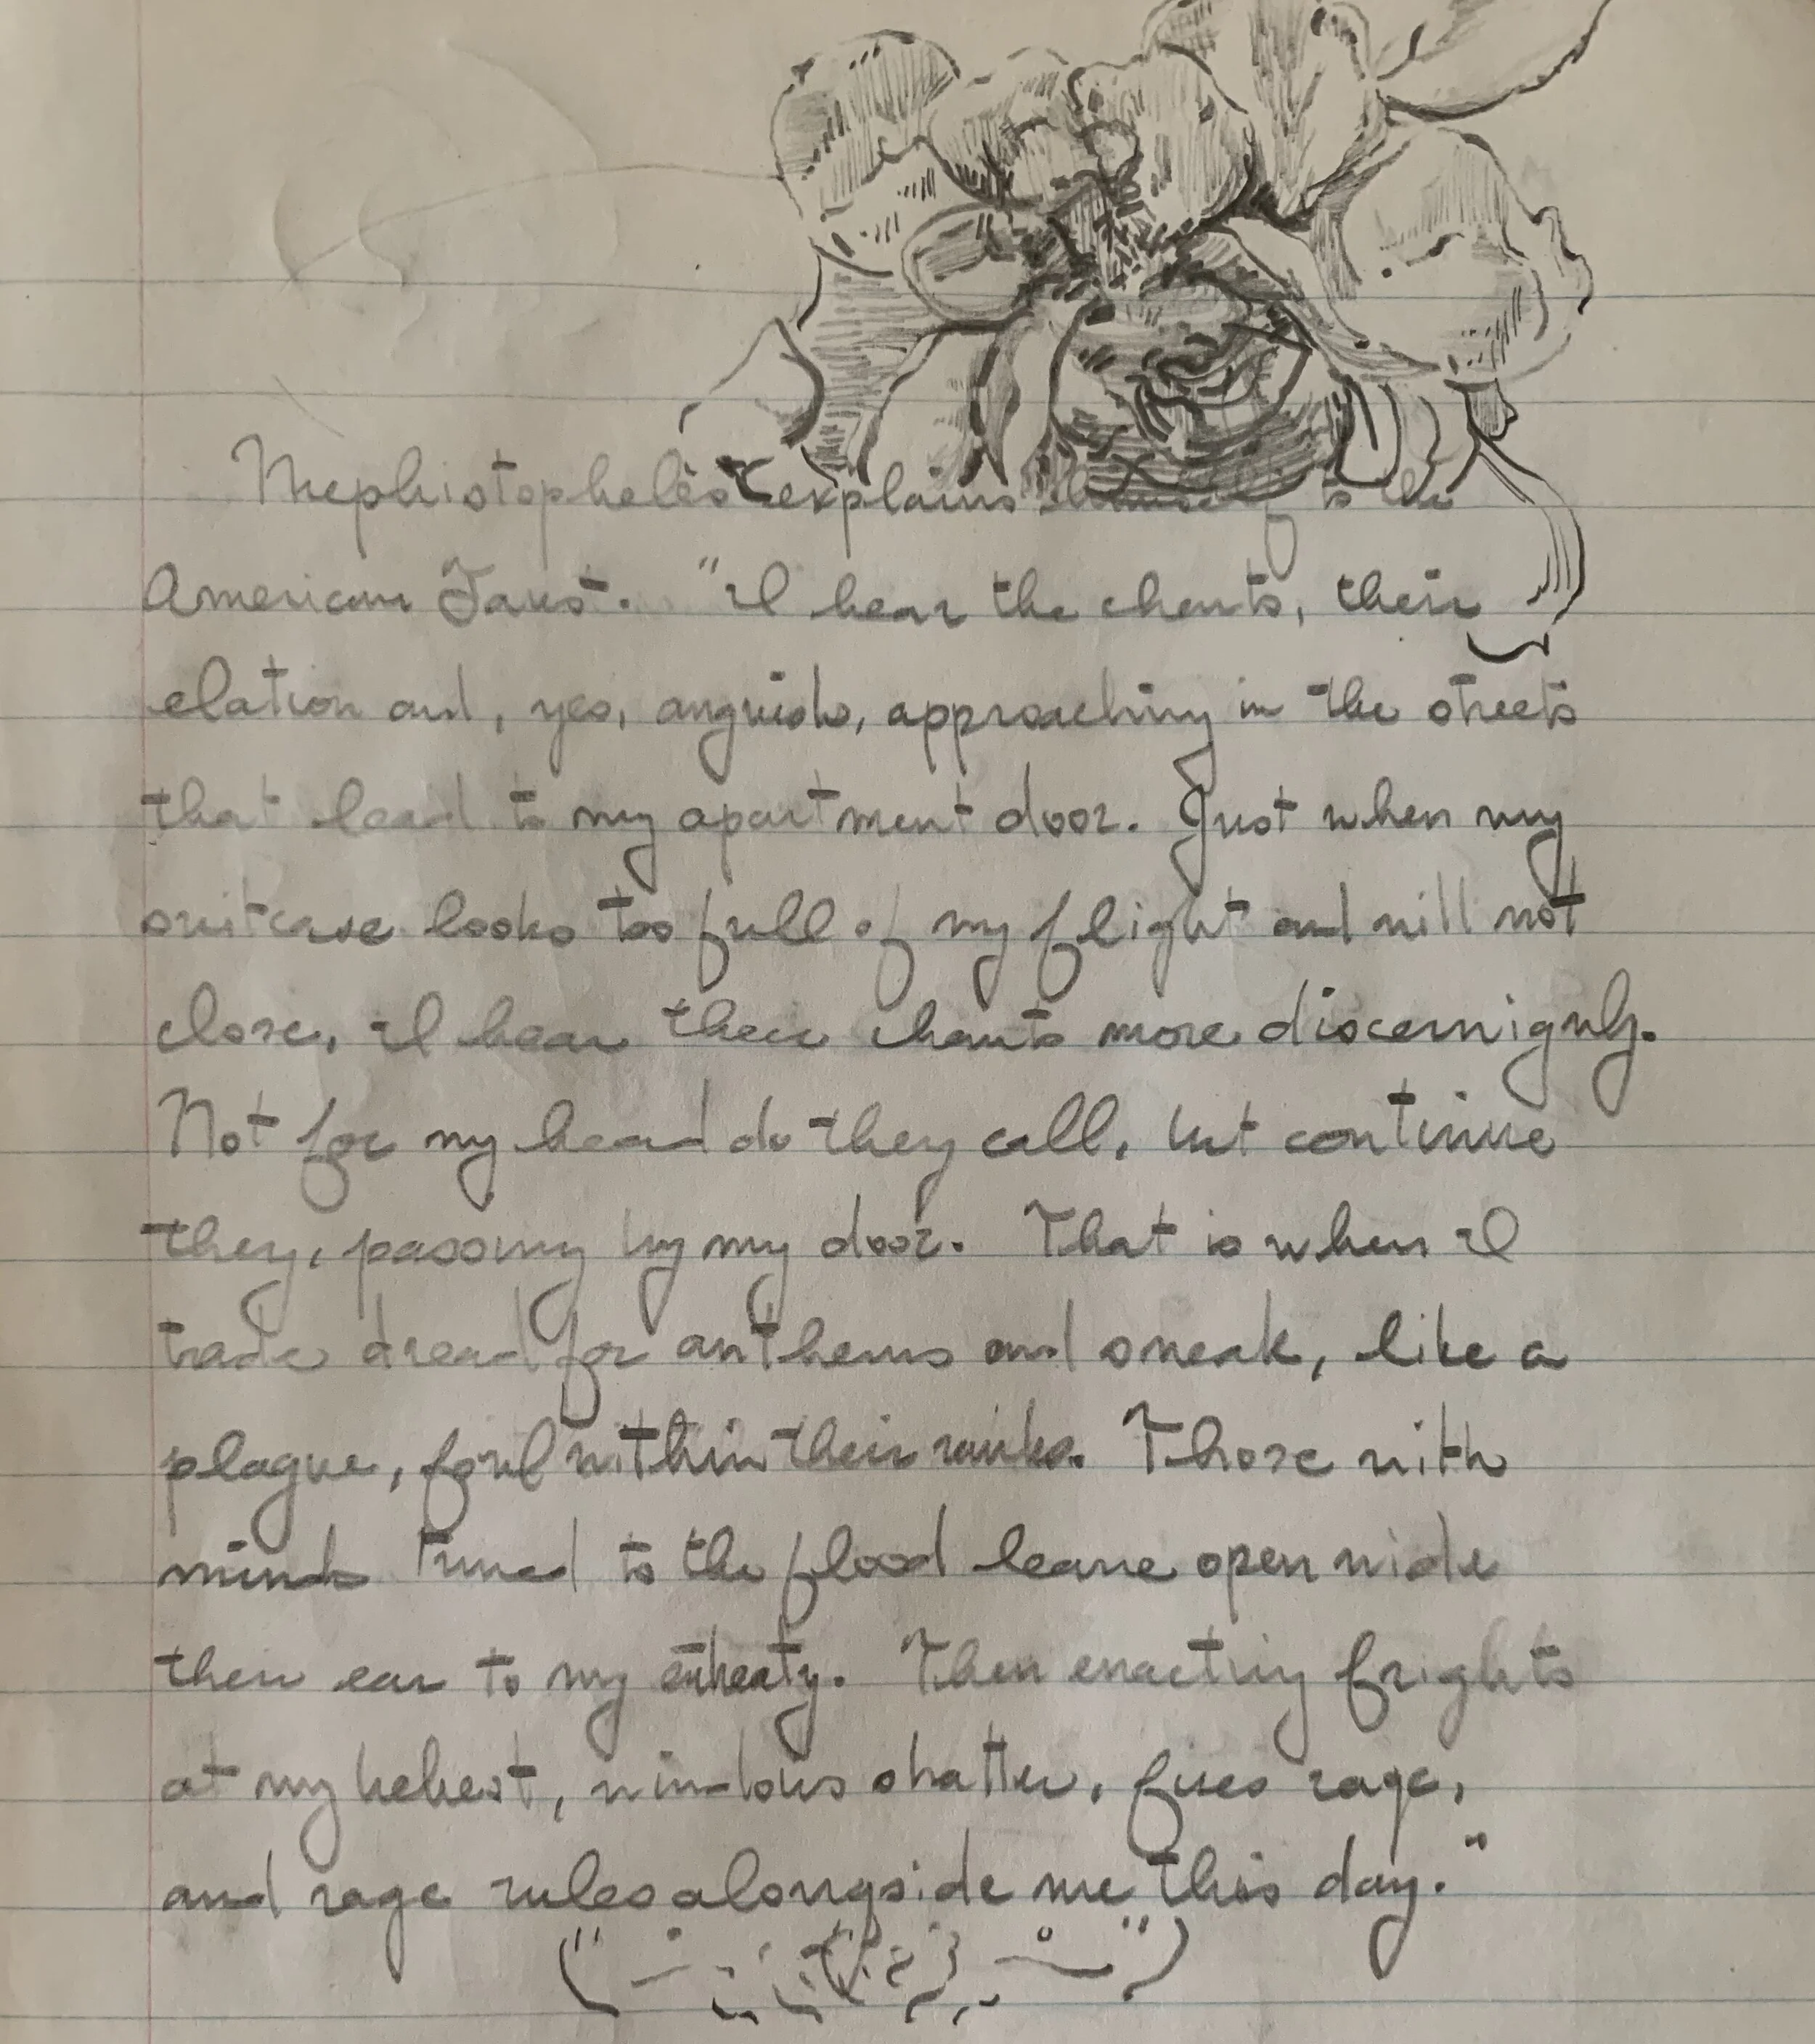 Mephistopheles explains himself to the
American Faust. "I hear the chants, their
elation and, yes, anguish, approaching in the streets
that lead to my apartment door. Just when my
suitcase looks too full of my flight and will not
close, I hear their chants more discernignly.
Not for my head do they call, but continue
they, passing by my door. That is when I
trade dread for anthems and sneak, like a
plague, foul within their ranks. Those with
minds tuned to the flood leave open wide
their ear to my entreaty. Then enacting frights
at my behest, windows shatter, fires rage,
and rage rules alongside me this day."